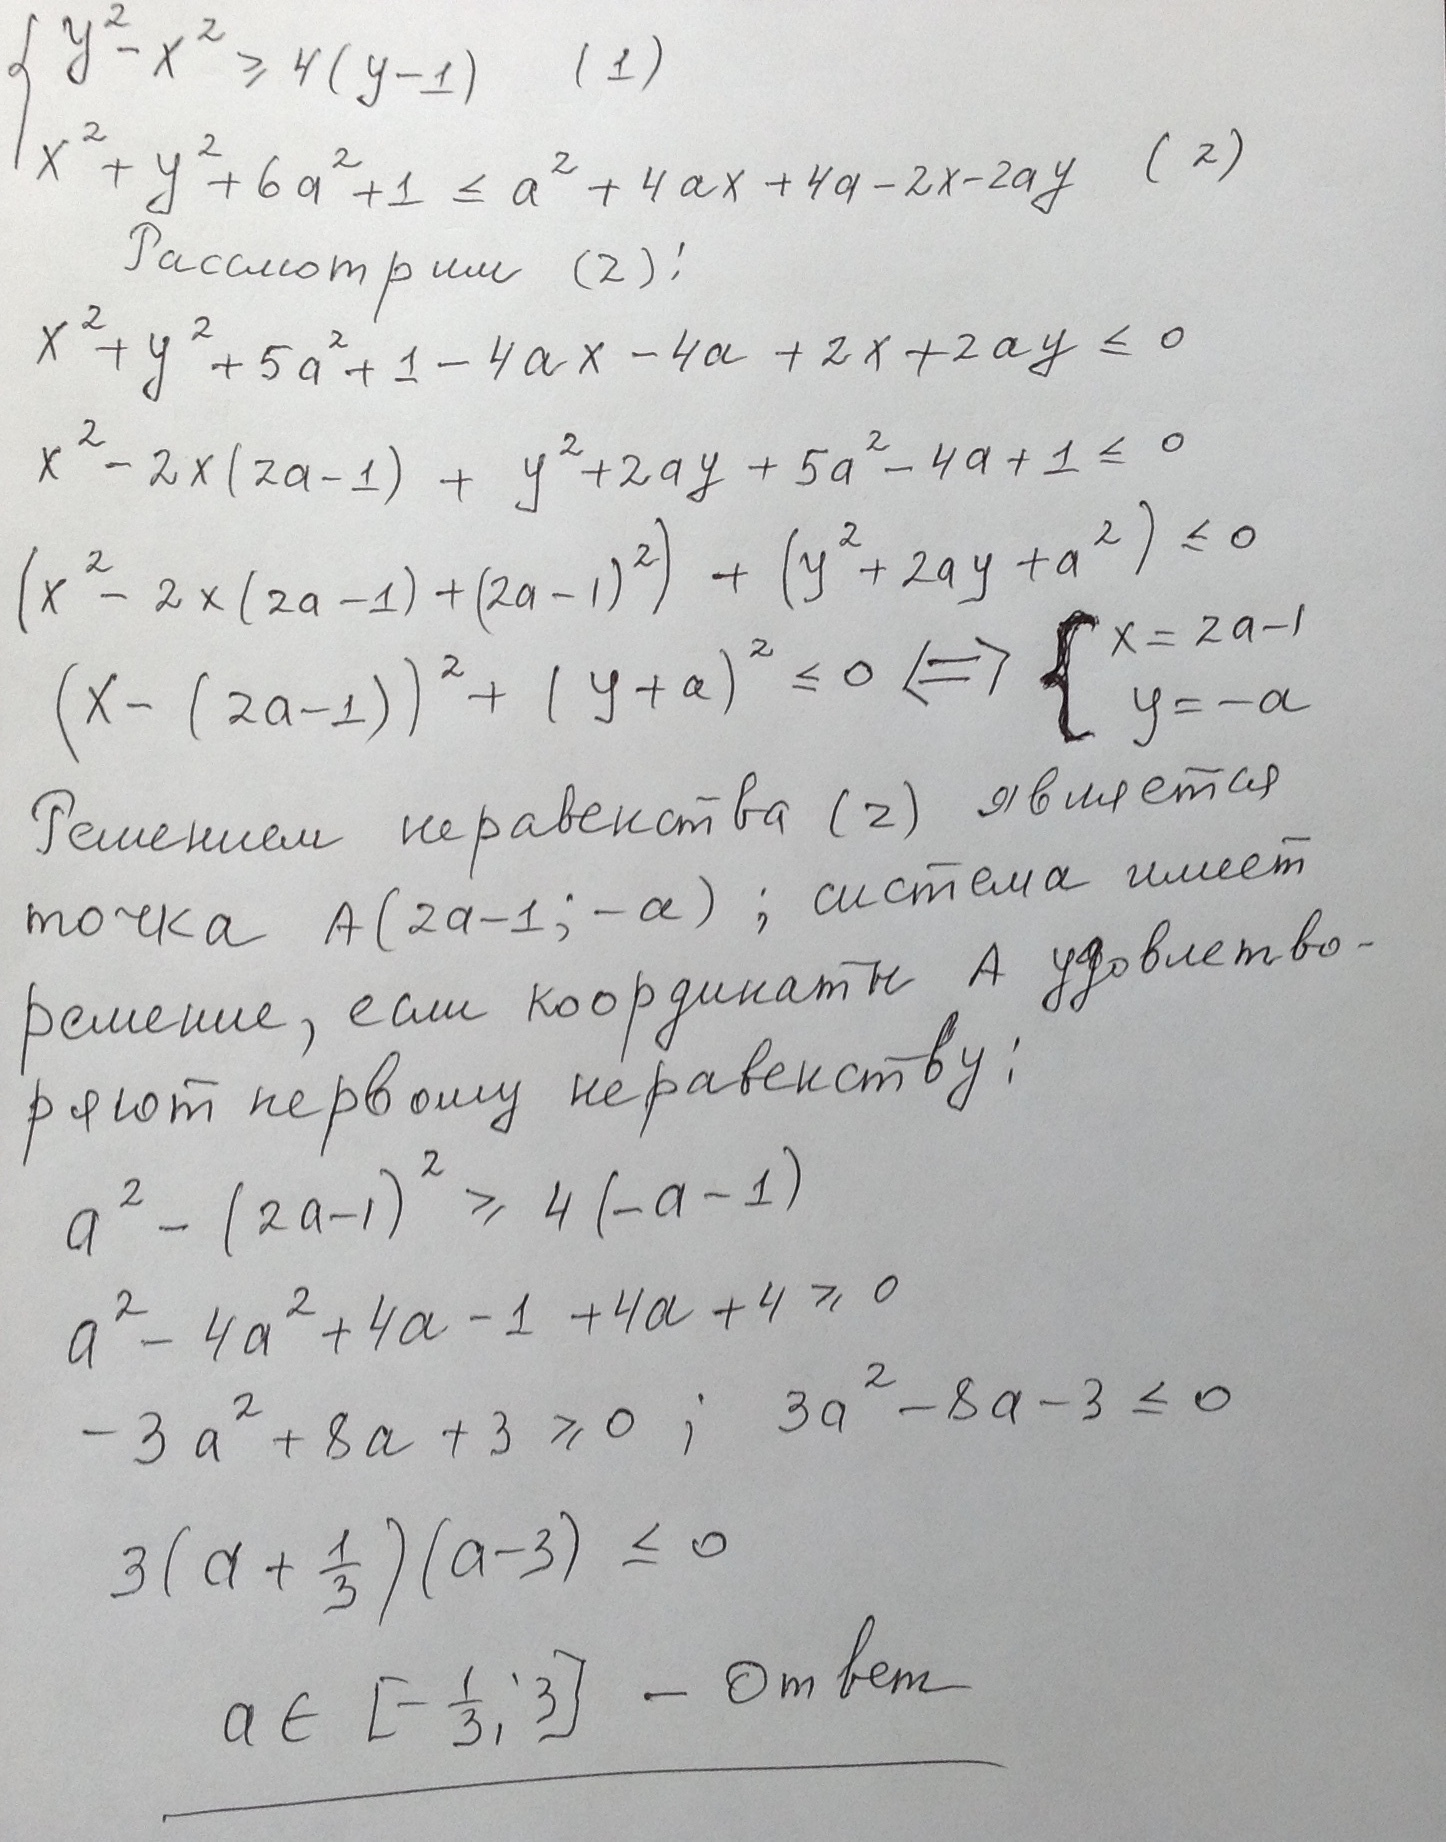 { y² - x² ≥ 4(y-1) (1)
x² + y² + 6a² + 1 ≤ a² + 4ax + 4a - 2x - 2ay (2)
Рассмотрим (2):
x² + y² + 5a² + 1 - 4ax - 4a + 2x + 2ay ≤ 0
x² - 2x(2a-1) + y² + 2ay + 5a² - 4a + 1 ≤ 0
(x² - 2x(2a-1) + (2a-1)²) + (y² + 2ay + a²) ≤ 0
(x - (2a-1))² + (y+a)² ≤ 0 <=> { x = 2a-1
y = -a
Решением неравенства (2) является
точка A(2a-1; -a); система имеет
решение, если координаты A удовлетво-
ряют первому неравенству:
a² - (2a-1)² ≥ 4(-a-1)
a² - 4a² + 4a - 1 + 4a + 4 ≥ 0
-3a² + 8a + 3 ≥ 0; 3a² - 8a - 3 ≤ 0
3(a + 1/3)(a-3) ≤ 0
a ∈ [-1/3; 3] - Ответ